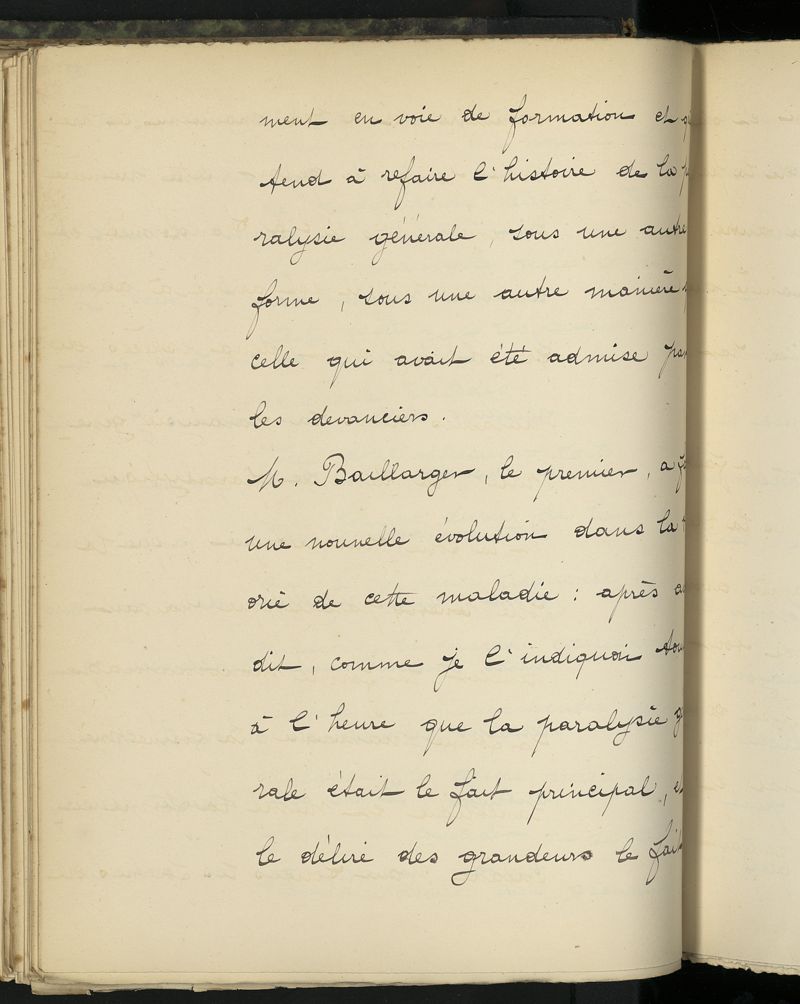 ment en voie de formation et
tend à refaire l'histoire de la
ralysie générale, sous une autre
forme, sous une autre manière
celle qui avait été admise
les devanciers.
M. Baillarger, le premier, a
une nouvelle évolution dans la
orie de cette maladie : après
dit, comme je l'indiquai
à l'heure que la paralysie
rale était le fait principal,
le délire des grandeurs le fait